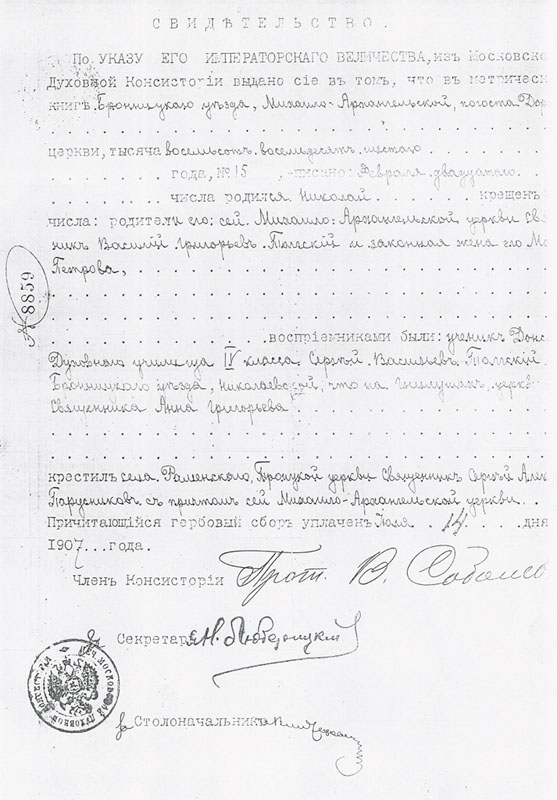 СВИДѢТЕЛЬСТВО.
По УКАЗУ ЕГО ИМПЕРАТОРСКАГО ВЕЛИЧЕСТВА, изъ Московско
Духовной Консисторіи выдано сіе въ томъ, что въ метрическ
книгѣ Бронницкаго уѣзда, Михаило-Архангельской, погоста Дор
церкви, тысяча восемьсотъ восемьдесятъ шестаго
года, №15, писано: Февраля двадцатаго
числа родился Николай крещенъ
числа: родители его: сей Михаило-Архангельской церкви Свя
никъ Василій Григорьевъ и законная жена его М
Петрова,
№ 8859
воспріемниками были: ученикъ Донс
Духовнаго училища IV класса Сергѣй Васильевъ
Бронницкаго уѣзда, Николаевской, что на церкв
Священника Анна Григорьева
крестилъ села Раменскаго, Троицкой церкви Священникъ Сергѣй Алек
Парусниковъ съ причтомъ сей Михаило-Архангельской церкви
Причитающійся гербовый сборъ уплаченъ Іюля 14 дня
1907 года.
Членъ Консисторіи Прот. В.
Секретарь Н.
Столоначальникъ